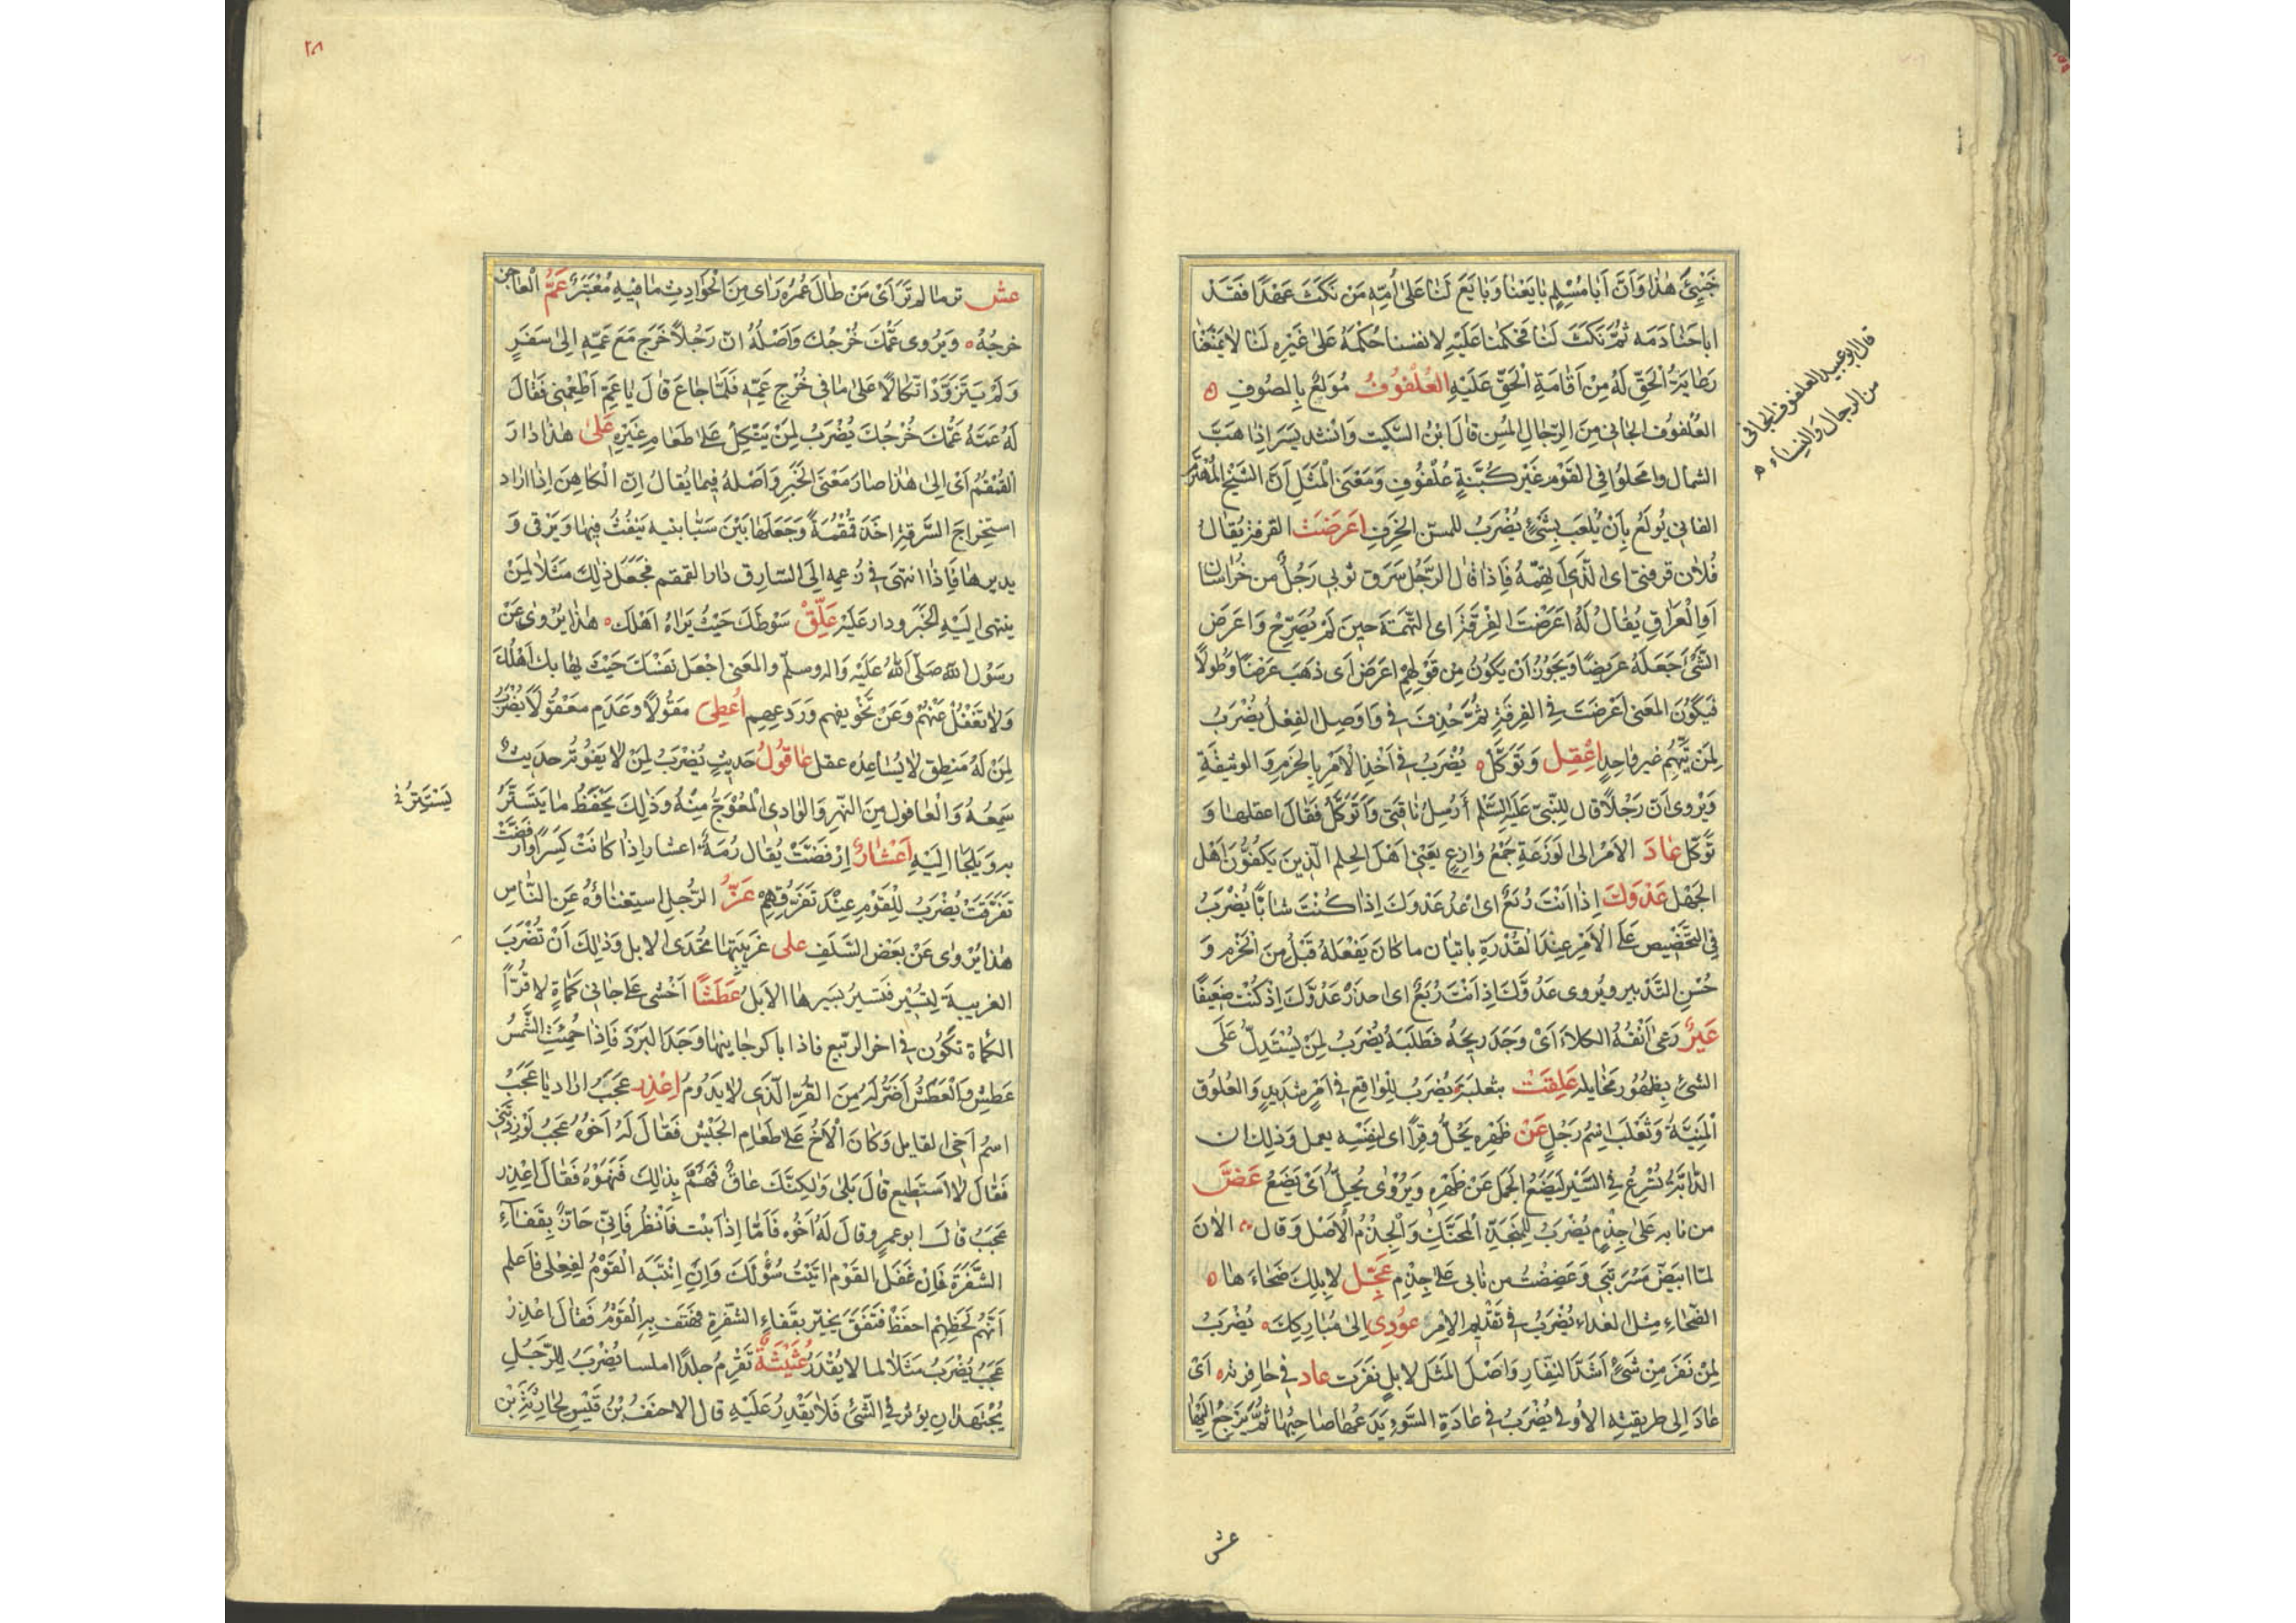 خَبِئَ هٰذا وَاَنَّ اَبا مُسْلِمٍ بايَعَنا وَبايَعَ لَنا عَلىٰ اَنّهِ مَنْ نَكَثَ عَهْدًا فَقَدْ
اباحَنا دَمَه ثمَّ نَكَثَ لَنا فحَكمنا عَلَيْهِ لانفسنا حُكْمَهُ عَلىٰ غَيْرِهِ لَنا لا يَمْنَعُنا
رِعايَةُ الحَقِّ لَهُ مِنْ اَقامَةِ الحَقِّ عَلَيْهِ العُلْفوُفُ مُولَعٌ بِالصُوفِ ه
العُلفوُف الجافي مِنَ الرِّجالِ المُسِن قالَ ابْنُ السَّكيت وَانشد يَسَر اِذا هَبَّ
الشمال وامحلوُا في القَوْم غَيْر كُبُنَّةٍ عُلْفُوفِ وَمَعْنَى المَثَلِ اَنَّ الشَيْخَ المُهْتَر
الفاني يُولَعُ بِاَنْ يُلعَبَ بِشَيْءٍ يُضْرَبُ للمسن الخَرِفِ اعَرَضَتَ القرفة يُقالُ
فُلان قرفتي اى الَّذي اَتهِمُهُ فَاِذا قالَ الرَّجُل سَرَق ثوبي رَجُلٌ من خُراسان
اَوِ العِراقِ يُقالُ لَهُ اَعْرَضْتَ القِرْفَةَ اى التُهمَةَ حينَ لَمْ يُصَرِّحْ وَاَعرَض
الشَّئ جَعَلَهُ عَريضًا وَيَجُوزُ اَنْ يَكُونُ مِن قَوْلِهِمْ اعَرَضَ اَى ذَهَبَ عَرضًا وَطُولًا
فيَكُونَ المَعنى اَعْرَضْتَ فِي القِرفَةِ ثمَّ حُذِفَ فى وَاوصِلَ الفِعْلُ يُضْرَبُ
لِمَن يَتَّهِمُ غير واحِدٍ اعْقِل وَتَوَكَّل ه يُضْرَبُ فى اَخْذِ الاَمْرِ بِالحَزم وَالوثيقَةِ
وَيُروى اَن رَجُلاً قال لِلنَّبىّ عَلَيْهِ السَّلم أُرْسِلُ ناقَتى وَاَتَوَكَّلُ فَقالَ اعقلها وَ
تَوَكّل عادَ الاَمْرُ الى الوَزَعَةِ جَمْعُ وازِعٍ يَعْنى اَهْلَ الحِلم الَّذينَ يَكفُّونَ اَهْل
الجَهْلِ عَدْوَكَ اِذا اَنْتَ رُبَعٌ اى اعْدُ عَدْوَكَ اِذا كُنْتَ شابًّا يُضْرَبُ
في التَّحْضيض عَلَى الاَمْرِ عِنْدَ القُدْرَةِ باتيان ما كانَ يَفْعَلهُ قَبْلُ مِنَ الحَزم وَ
حُسْنِ التَّدبير ويُروى عَدُوَّكَ اِذ اَنْتَ رُبَعٌ اى احذر عَدُوَّكَ اِذ كُنْتَ ضَعيفًا
عَيْرٌ رَعى اَنْفُهُ الكَلاءَ اَىْ وَجَدَ ريحَهُ فَطَلَبَهُ يُضرَبُ لِمَنْ يُسْتَدِلُّ عَلَى
الشئ بِظُهُورِ مَخايله عَلِقَتْ بثعلبَةَ يُضرَبُ لِلْواقِعِ في اَمْرٍ شَديدٍ وَالعُلُوق
المَنِيَّة وَثَعْلَبَ اسْمُ رَجُلٍ عَنْ ظَهْرِهِ يَحُلُّ وِقرًا اى لِنَفْسِه يعمل وَذلِكَ ان
الدّابَّةَ تُسْرِعُ فِي السَّيْرِ لِيَضَعَ الحِمْلَ عَن ظَهْرِهِ وَيُرْوى يُحِلُّ اَىْ يَضَعُ عَضَّ
من نابه عَلىٰ جِذْمٍ يُضْرَبُ لِلمنَجَّذِ المُحَنَّكِ وَالجِذْمُ الاَصْل وَقال الاٰنَ
لمّا ابيَضَّ مَسْرَبَتي وَعَضِضْتُ من نابى عَلى جِذْمِ عَجِّل لاِبِلِكَ ضَحاءَ ها ه
الضّحاءِ مِثل الغداء يُضْرَبُ فى تَقْديم الاَمْرِ عوُدِى اِلى مَبارِكِكَ ه يُضْرَبُ
لِمَنْ نَفَرَ مِنْ شَئ اَشَدَّ النِفّارِ وَاصْلَ المَثَل لابِلٍ نَفَرَت عاد في حافرته اَىْ
عادَ اِلى طريقته الاُولى يُضْرَبُ في عادَةِ السَّوءِ يَدَعُها صاحِبُها ثمَّ يَرْجِعُ اِلَيْها
قال ابو عبيد العلفوف الجافى
من الرجال والنساء ه
عش
٢٠٨
عش تر مالم تَرَ اَىْ مَنْ طالَ عُمرُه رَاى مِنَ الحَوادِثِ ما فيهِ مُعْتَبَرٌ عَمُّ العاجز
خرجُهُ ه وَيُروى عَمُّكَ خُرْجُكَ وَاَصْلُهُ انّ رَجُلاً خَرَجَ مَعَ عَمِّهِ اِلىٰ سَفَرٍ
وَلَمْ يَتَزَوَّدْ اتكالًا عَلىٰ ما في خُرْجِ عَمِّهِ فَلَمّا جاعَ قالَ يا عَمِّ اَطْعِمْنى فَقالَ
لَهُ عَمَّهُ عَمُّكَ خُرْجُكَ يُضْرَبُ لِمَنْ يَتَّكِلُ عَلى طَعامِ غَيْرِهِ عَلىٰ هٰذا دارَ
القُمْقُمُ اَى اِلىٰ هٰذا صارَ مَعْنَى الخَبَرِ وَاَصْلهُ فيما يُقالُ اِنّ الكاهِنَ اِذا اراد
استِخراجَ السَّرقةِ اخَذَ قُمْقُمَةً وَجَعَلَها بَيْنَ سَبّابتيه يَنْفُثُ فيها وَيَرْقى وَ
يديرها فَاِذا انتهى في زُعمِهِ اِلَى السّارِق دار القمقم فجَعَلَ ذلِكَ مَثَلاً لِمَنْ
ينتهى اِلَيْهِ الخَبَر ودار عَلَيْه عَلِّقْ سَوْطَكَ حَيْثُ يَراهُ اَهْلك ه هٰذا يُروىٰ عَنْ
رسَوُل اللهِ صَلّى اللهُ عَلَيْهِ وَاله وسلّم والمَعنى اجْعَل نَفْسَكَ حَيْثُ يَهابك اَهْلُكَ
وَلا تَغْفُلْ عَنْهُمْ وَعَنْ تَخْويفهم وَرَدعِهِم اُعْطِىَ مَقُولاً وعَدِمِ مَعْقُولاً يُضْرَبُ
لِمَنْ لَهُ مَنطِق لا يُساعِدُه عقل عاقُولُ حَديثٍ يُضْرَبُ لِمَنْ لا يَفوُتُه حَديثٌ
سَمِعُهُ وَالعاقول مِنَ النَّهرِ وَالوادى المُعْوَجُّ مِنْهُ وَذلِكَ يَحْفَظُ ما يَتَسَتَّرُ
به وَيَلجَأ اِلَيْهِ اَعْشارٌ اِرْفَضَّتْ يُقال بُرمَةٌ اعشار اِذا كانَتْ كِسَرًا وارفضَّتْ
تَفَرَّقَتْ يُضْرَبُ لِلْقَوْمِ عِنْدَ تَفَرُّقِهِمْ عَزُّ الرَّجُلِ استِغناؤُهُ عَنِ النّاسِ
هٰذا يُرْوى عَنْ بَعْض السَّلَفِ على غَريبَتِها تُحْدَى الابل وَذٰلِكَ اَنْ تُضْرَبَ
الغريبة لِتَسيْر فتسيرُ بسَيرها الاَبلُ عَطَشًا اَخْشى عَلى جانى كَماةٍ لا قُرًّا
الكَماة تكوُن في اخر الربّيع فاذا باكر جانيها وَجَدَ البَرْدَ فَاِذا حَمِيَتِ الشَّمسُ
عَطِشَ وَالعَطَشُ اَضَرُّ لَهُ مِنَ القُرِّ الَّذي لا يَدُومُ اعْذِر عَجَبَ اراد يا عَجَبُ
اسمُ اَخى القايل وَكانَ الاَخُ عَلى طَعامِ الجَيْشِ فَقالَ لَهُ اَخوُهُ عَجَبُ لَوْ زِدْتَني
فَقالَ لا اَستَطيع قالَ بَلىٰ وَلكِنَّكَ عاقٌّ فَهَمَّ بِذلِكَ فَنَهَوْهُ فَقالَ اعْذِر
عَجَبُ قالَ ابو عمرٍو قالَ لَهُ اَخُوه فَاَمّا اِذا ابَيْت فَانْظُر فَاِنّي حازٌّ بِقَفاءِ
الشَّفْرَةِ فَاِنْ غَفَلَ القَوْمُ اتَيْتُ سُؤْلَكَ وَاِنِ انْتَبَهَ القَوْمُ لِفِعْلى فاَعلم
اَنَّهُم لحَظِّهِمْ احفَظْ فَتَفَقَ يحزّ بقَفاءِ الشفرةِ فهتَف بِه القَوْمُ فَقالَ اعْذِرْ
عَجَبُ يُضْرَبُ مَثَلاً لما لا يُقْدَرُ عُثَيْثَةٌ تَقْرِمُ جلدًا املسا يُضْرَبُ لِلرَّجُلِ
يُجْتَهَد ان يؤثر فى الشّئ فَلا يَقْدِرُ عَلَيْهِ قال الاحنَفُ بْنُ قَيْسٍ لحارِثَةَ بْن
يَسْتَتِرُ خ